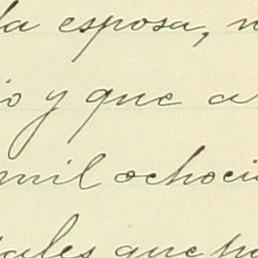 la esposa,
y que a
mil ochoci
ales que